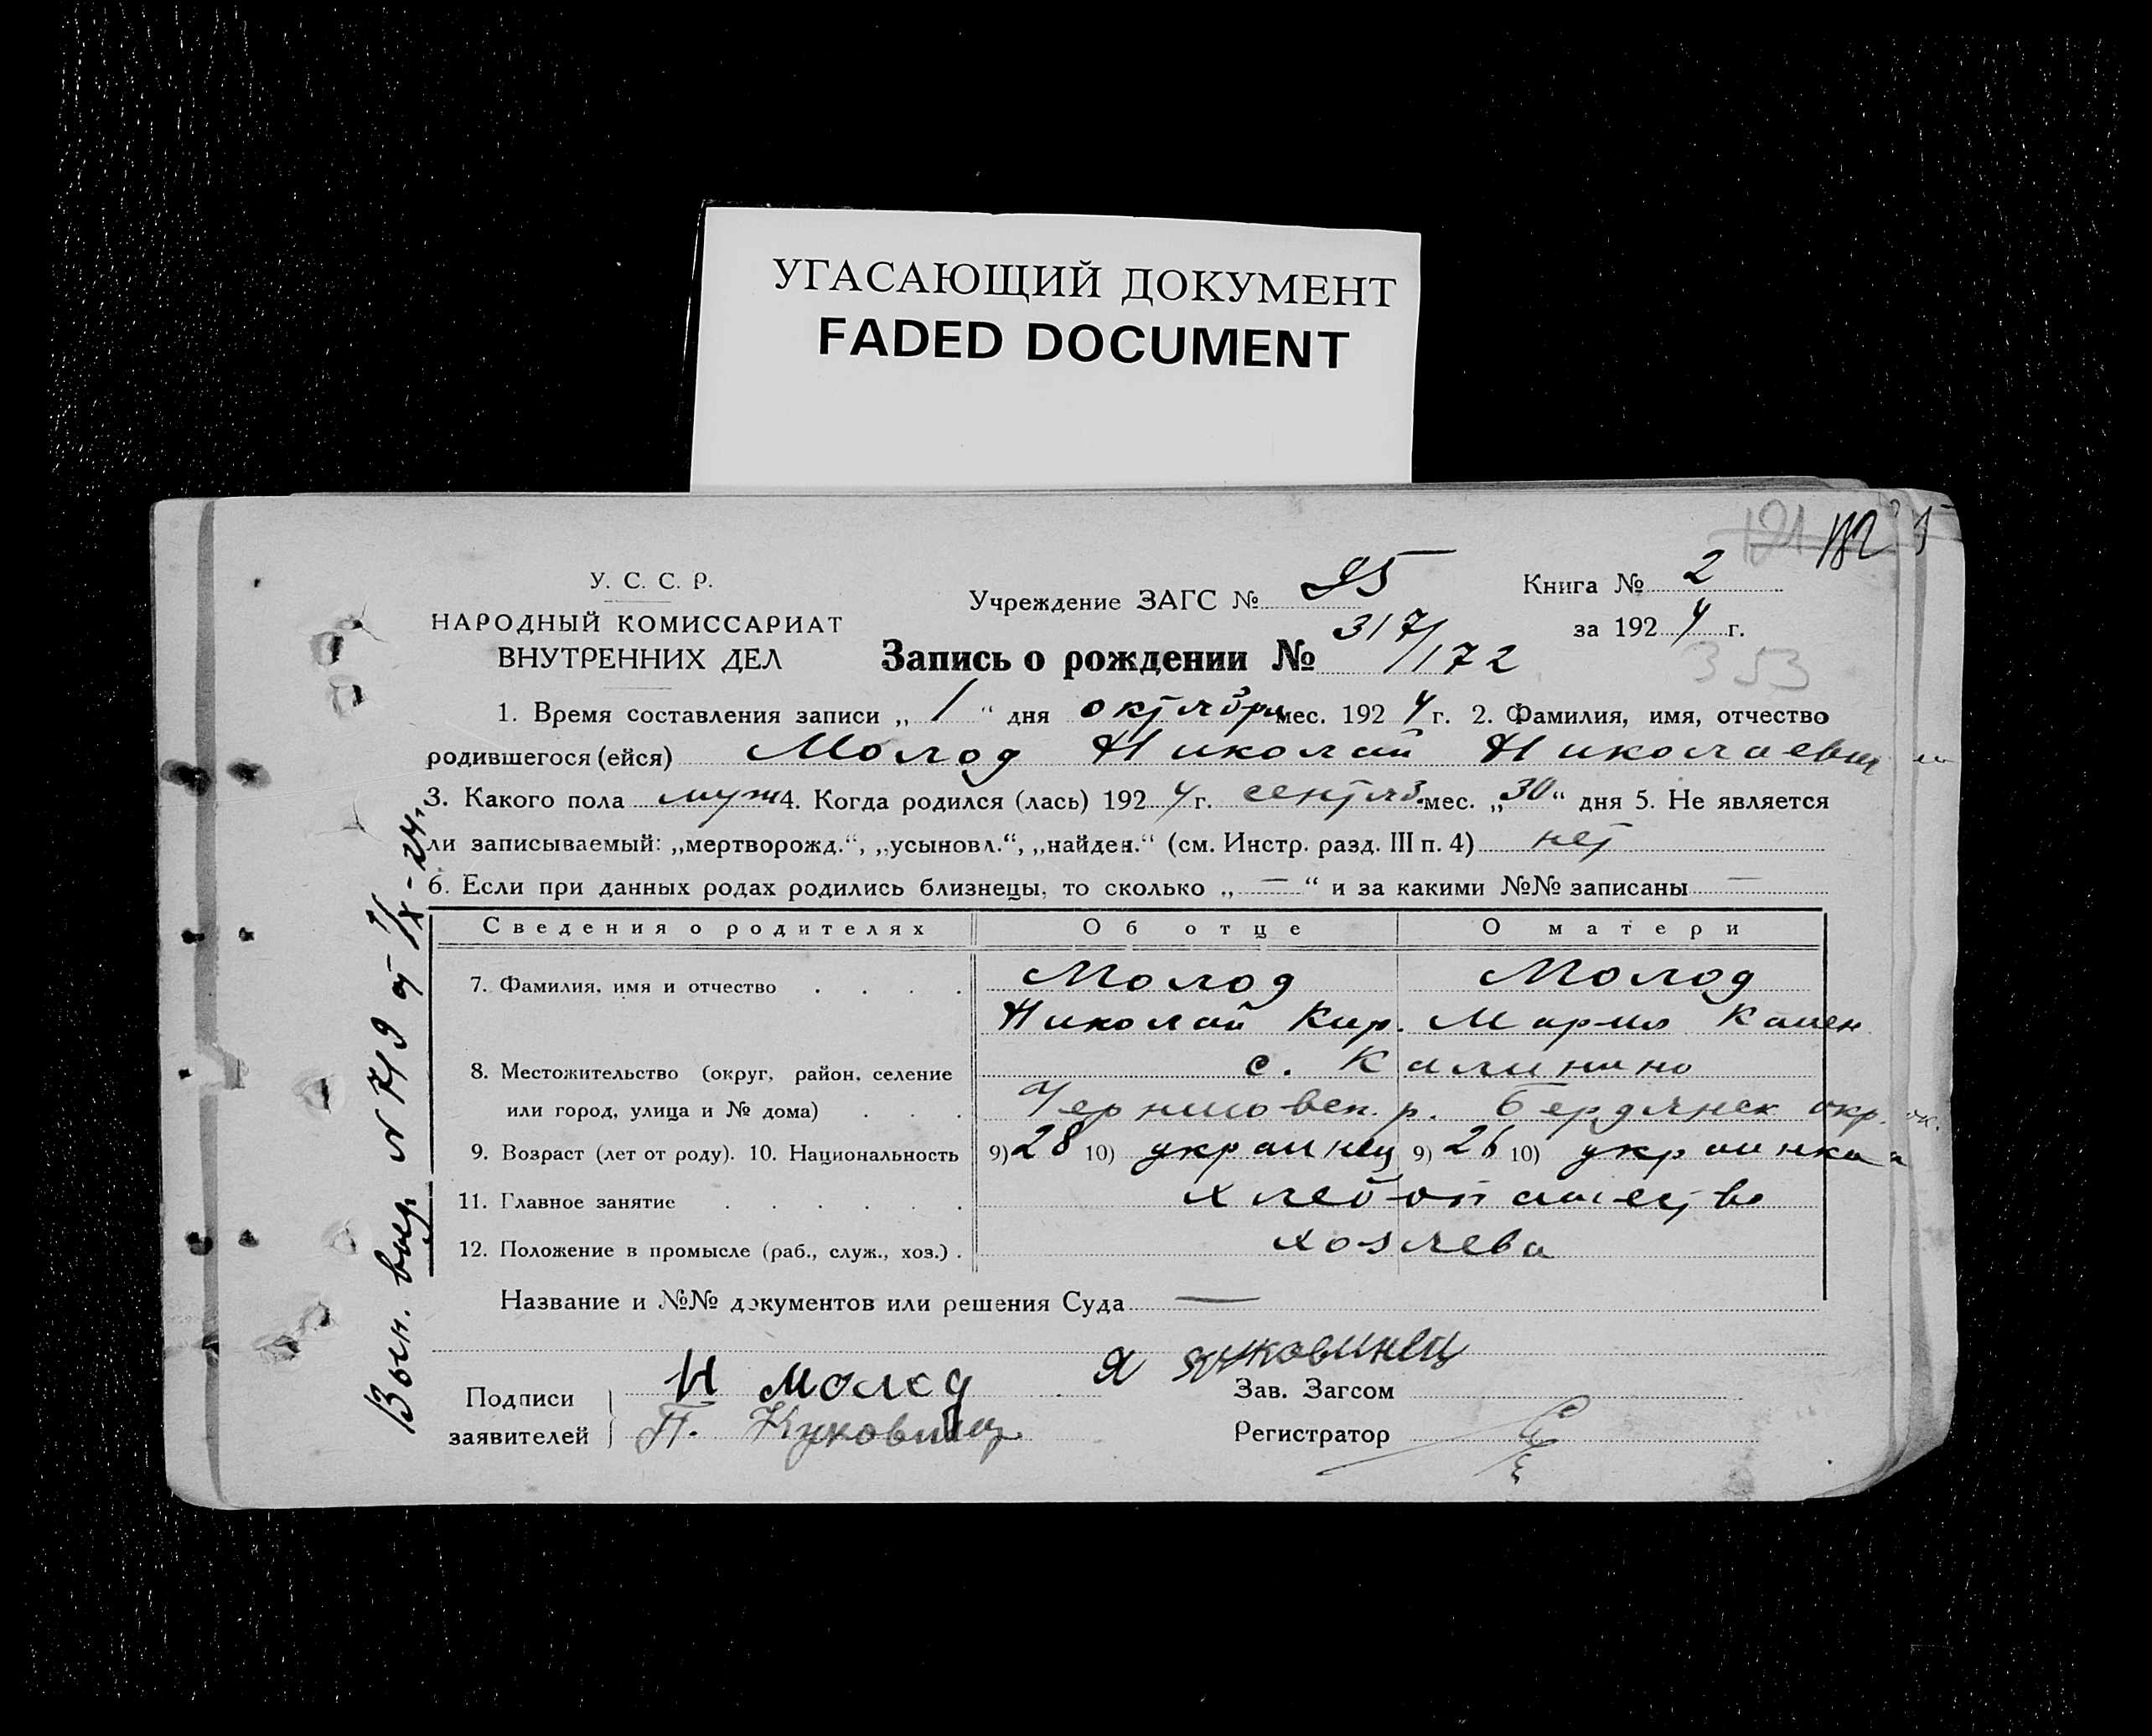 УГАСАЮЩИЙ ДОКУМЕНТ
FADED DOCUMENT
У. С. С. Р.
НАРОДНЫЙ КОМИССАРИАТ
ВНУТРЕННИХ ДЕЛ
Учреждение ЗАГС №
Книга № 2
за 1924 г.
Запись о рождении № 317/172
353
1. Время составления записи „ 1 “ дня октября мес. 1924 г. 2. Фамилия, имя, отчество
родившегося (ейся) Молод Николай Николаевич
3. Какого пола муж 4. Когда родился (лась) 1924 г. сентяб. мес. „30“ дня 5. Не является
ли записываемый: „мертворожд.“, „усыновл.“, „найден.“ (см. Инстр. разд. III п. 4) нет
6. Если при данных родах родились близнецы, то сколько „ — “ и за какими №№ записаны —
Сведения о родителях Об отце О матери
7. Фамилия, имя и отчество . . . . Молод Молод
Николай Кир. Мария
8. Местожительство (округ, район, селение с. Калинино
или город, улица и № дома) . . . Черниговск. р. Бердянск окр.
9. Возраст (лет от роду). 10. Национальность 9) 28 10) украинец 9) 26 10) украинка
11. Главное занятие . . . . . . хлебопашество
12. Положение в промысле (раб., служ., хоз.) . хозяева
Название и №№ документов или решения Суда —
Подписи заявителей
Н Молод
П. Жуковинец
Я Жуковинец
Зав. Загсом
Регистратор
Вып. выд. № 719 от 1/X-24 г.